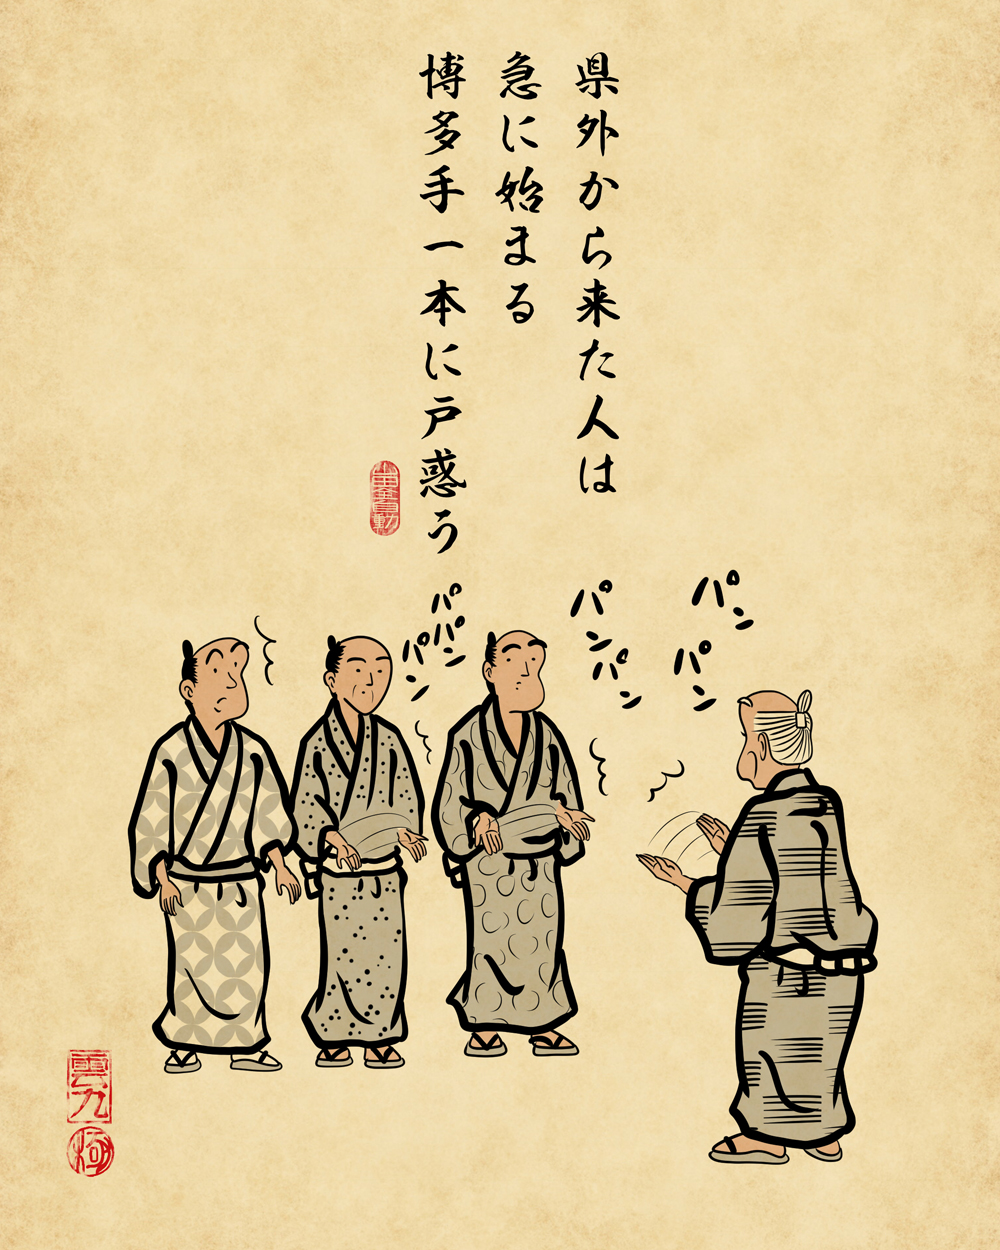 県外から来た人は
急に始まる
博多手一本に戸惑う
パンパン
パンパン
パパパン
雲九
極